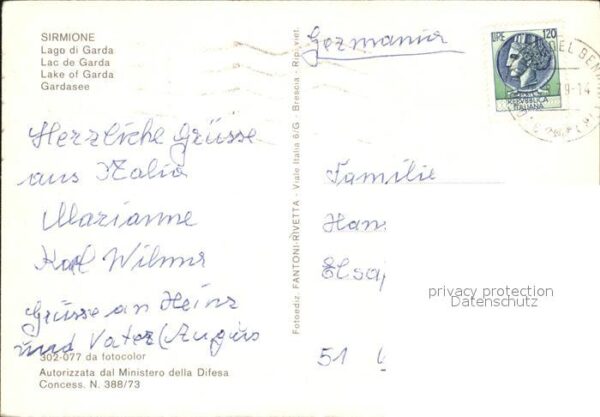 SIRMIONE
Lago di Garda
Lac de Garda
Lake of Garda
Gardasee
Herzliche Grüsse
aus Italia
Marianne
Karl Wilmar
Grüsse an Heinz
und Vater (Angus
302-077 da fotocolor
Autorizzata dal Ministero della Difesa
Concess. N. 388/73
Fotoediz. FANTONI-RIVETTA - Viale Italia 6/G - Brescia - Rep. viet.
Germania
LIRE 120
REPVBBLICA
ITALIANA
DEL
9-14
Familie
Han
Elsa
51
privacy protection
Datenschutz